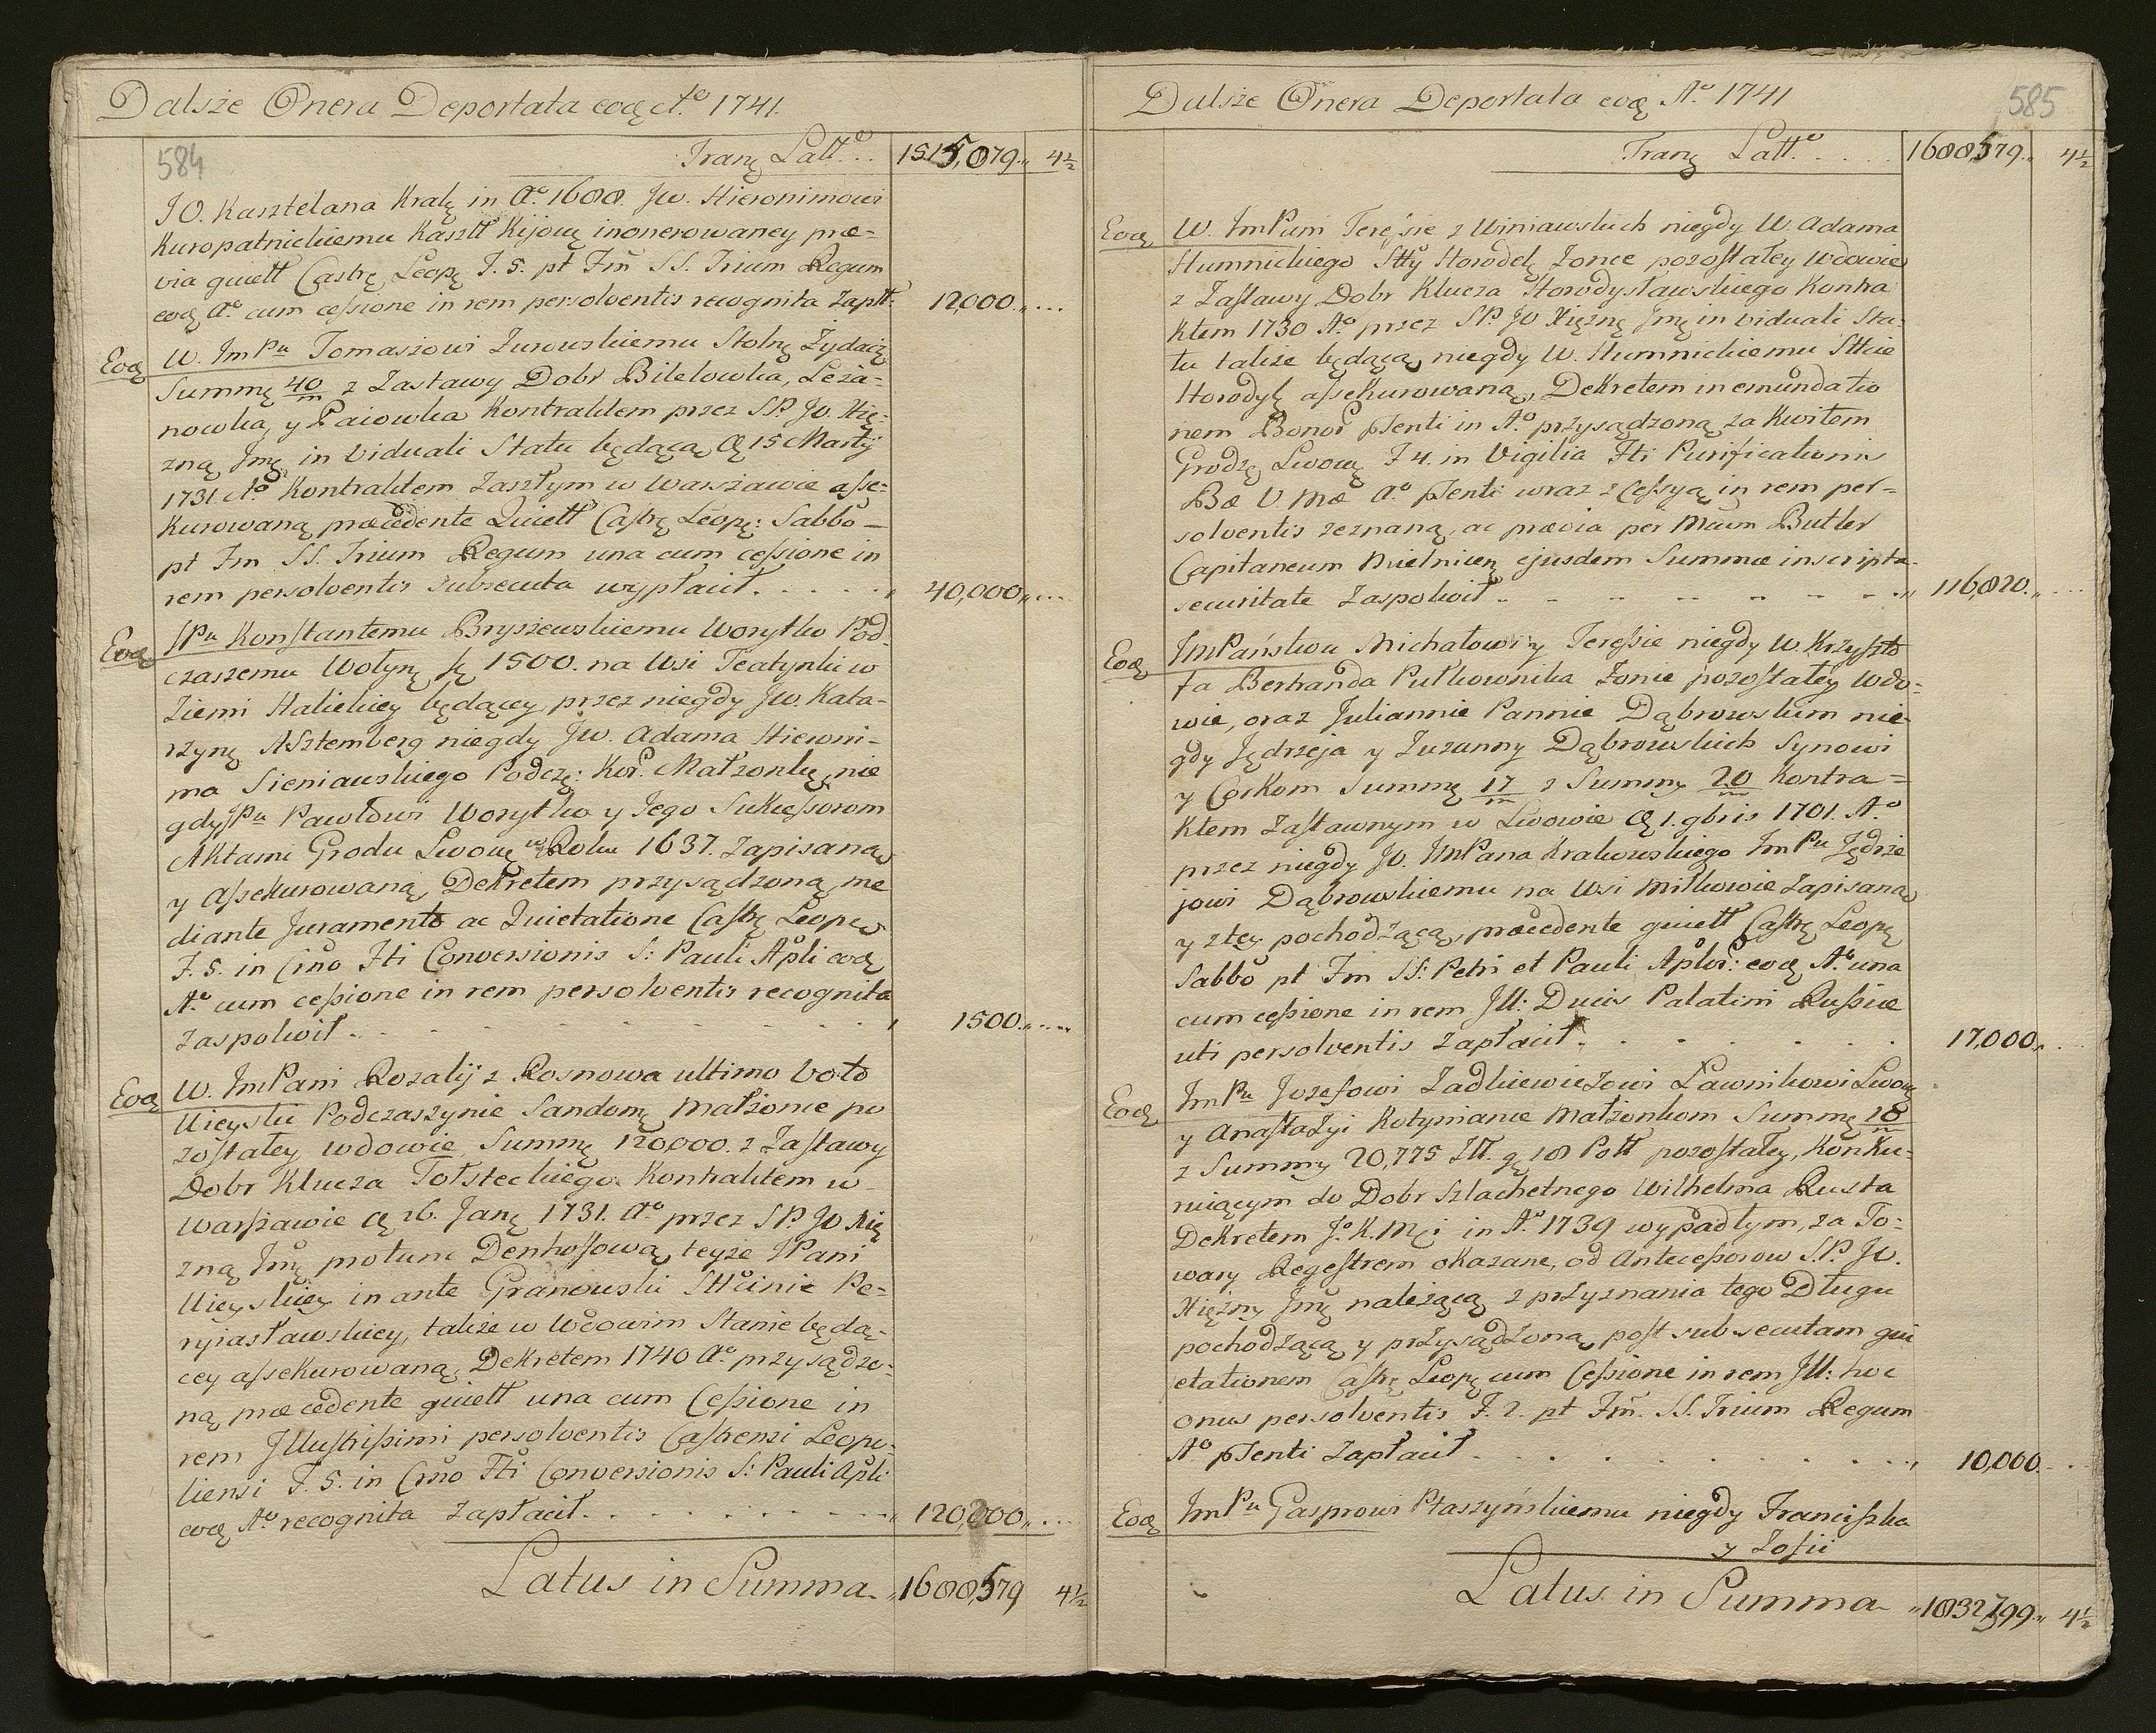 Dalsze Onera Deportata eoq A.o 1741.
584
Tranę Latt.o .. 1515,079.„ 4½
J O. Kasztelana Kralę in A.o 1688. Jw. Hieronimowi
Kuropatnickiemu Kasztt Kijow inonerowaney præ-
via quiett Castrę Leopę F. 5. pt Fm SS. Trium Regum
eoq A.o cum cessione in rem persolventis recognita Zaptt. 12,000.„ ...
Eoq W. Im Pu Tomaszowi Zurowskiemu Stolnę Zydacz
Summę 40/m z Zastawy Dobr Bilelowka, Leza-
nowka, y Paiowka Kontraktem przez SP. Jo. Xię-
zną Jmę in viduali Statu będącą, d 15 Martij
1731 A.o Kontraktem Zaszłym w Warszawie asse-
kurowaną præcedente Quiett Castrę Leopę: Sabbo-
pt Fm SS. Trium Regum una cum cessione in
rem persolventis subsecuta wypłacił . . . . . 40,000„ ...
Eoq JPu Konstantemu Bryszewskiemu Worytko Pod
czaszemu Wołynę sę 1500. na Wsi Teatynki w
Ziemi Halickiey będącey, przez niegdy Jw. Kata-
rzynę A Sztemberg niegdy Jw. Adama Hieroni-
ma Sieniawskiego Podczę: Kor. Małzonkę, nie
gdy JPu Pawłowi Worytko y Jego Sukcessorom
Aktami Grodu Lwow w Roku 1637. Zapisaną
y Assekurowaną, Dekretem przysądzoną, me
diante Juramento ac Quietatione Castrę Leopę
F. 5. in Crno Fti Conversionis S: Pauli Apli eoq
A.o cum cessione in rem persolventis recognita
Zaspokoił . . . . . . . . . 1500.„ ....
Eoq W. ImPani Rozalij z Rosnowa ultimo voto
Uieyski Podczaszynie Sandomę Małzonce po
zostałey wdowie, Summę 120,000. z Zastawy
Dobr Klucza Tołsteckiego Kontraktem w
Warszawie d 26. Janę 1731. A.o przez SP. Jo Xię
zną Jmę protunc Denhofową, teyze JPani
Uieyskiey in ante Granowski Sttcinie Pe-
ryiasławskiey, takze w Wdowim Stanie będą-
cey assekurowaną, Dekretem 1740 A.o przysądzo-
ną, præcedente quiett una cum Cessione in
rem Jllustrissimi persolventis Castrensi Leopo-
liensi F. 5. in Crno Fti Conversionis S: Pauli Apli
eoq A.o recognita Zapłacił . . . . . . . . . 120,000„ ...
Latus in Summa.„ 1688,579 4½
Dalsze Onera Deportata eoq A.o 1741
585
Tranę Latt.o . . . . 1688,579.„ 4½
Eoq W. ImPani Teressie z Winiawskich niegdy W. Adama
Humnickiego Stty Horodelę Zonie pozostałey Wdowie
z Zastawy Dobr Klucza Horodysławskiego Kontra
ktem 1730 A.o przez SP. Jo Xięznę Jmę in viduali Sta-
tu takze będącą, niegdy W. Humnickiemu Sttcie
Horodyę assekurowaną, Dekretem in emundatio
nem Bonor pTenti in A.o przysądzoną, za Kwitem
Grodzę Lwowę F 4. in Vigilia Fti Purificationis
Bæ V. Mæ A.o pTenti wraz z Cessyą in rem per-
solventis zeznaną, ac prævia per Mcum Butler
Capitaneum Mielnicen ejusdem Summæ inscripta-
securitate Zaspokoił .. . . . . . . .„ 116,820.„ ...
Eoq ImPaństwu Michałowi y Teressie niegdy W. Krzyszto
fa Bertranda Pułkownika Zonie pozostałey Wdo-
wie, oraz Juliannie Pannie Dąbrowskim nie-
gdy Jędrzeja y Zuzanny Dąbrowskich Synowi
y Corkom Summę 17/m z Summy 20/m Kontra-
ktem Zastawnym w Lwowie d 1. 9bris 1701. A.o
przez niegdy Jo. ImPana Krakowskiego ImPu Jędrze
jowi Dąbrowskiemu na Wsi Miłkowie Zapisaną
y ztey pochodzącą, præcedente quiett Castrę Leopę
Sabbo pt Fm SS: Petri et Pauli Aplor: eoq A.o una
cum cessione in rem Jll: Ducis Palatini Russiæ
uti persolventis Zapłacił . . . . . . . 17,000.„ ...
Eoq ImPu Jozefowi Zadkiewiczowi Ławnikowi Lwow
y Anastazyi Kotyniance Małzonkom Summę 10/m
z Summy 20,775 Ztt. gę 18 Pott pozostałey, Konku-
ruiącym do Dobr Szlachetnego Wilhelma Rusta
Dekretem J.o K. Mci in A.o 1739 wypadłym, za To-
wary Regestrem okazane, od Antecessorow SP. Jo.
Xięzny Jmę nalezącą z przyznania tego Długu
pochodzącą y przysądzoną, post subsecutam qui
etationem Castrę Leopę cum Cessione in rem Jll: hoc
onus persolventis F. 2. pt Fm. SS. Trium Regum
A.o pTenti Zapłacił . . . . . . . . . . 10,000.„ ..
Eoq ImPu Gasprowi Ptaszyńskiemu niegdy Franciszka
y Zofii
Latus in Summa „1832,399.„ 4½